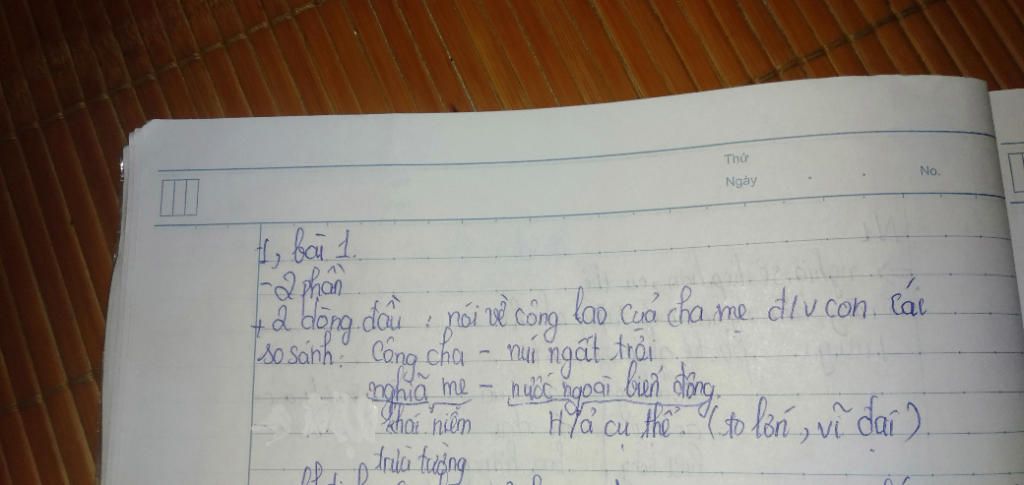 Thứ
Ngày . . No.
1, bài 1.
- 2 phần
+ 2 dòng đầu : nói về công lao của cha mẹ đ/v con cái
so sánh: Công cha - núi ngất trời
nghĩa mẹ - nước ngoài biển đông.
khái niệm H/ả cụ thể. (to lớn, vĩ đại)
trừu tượng